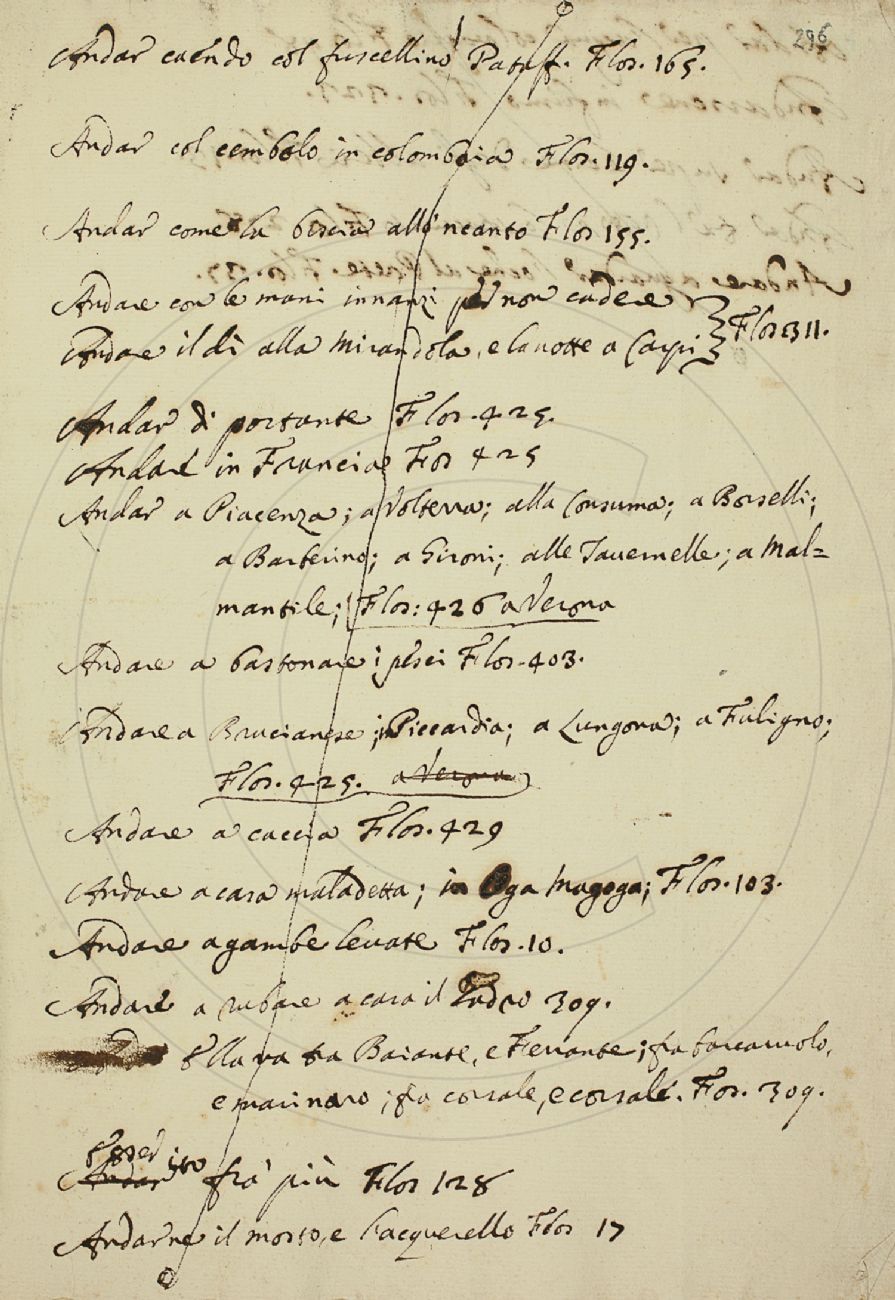 296
Andar caendo col fuscellino Pataff. Flos. 165.
Andar col cembolo in colombaia Flos. 119.
Andar come la biscia all'incanto Flos 155.
Andare con le mani innanzi per non cadere
Andare il dì alla Mirandola, e la notte a Carpi } Flos 311.
Andar di portante Flos. 425.
Andare in Francia Fos 425
Andar a Piacenza; a Volterra; alla Consuma; a Borselli;
a Barberino; a Gironi; alle Tavernelle; a Mal=
mantile; Flos: 426 a Verona
Andare a bastonare i pesci Flos. 403.
Andare a Brucianese; in Piccardia; a Lungone; a Fuligno;
Flos. 425. a Verona
Andare a caccia Flos. 429
Andare a casa maladetta; in Oga Magoga; Flos. 103.
Andare a gambe levate Flos. 10.
Andare a rubare a casa il Ladro 309.
Ella va tra Baiante, e Ferrante; fra barcaruolo,
e marinaro; fra corsale, e corsale. Fos. 309.
Esser ito
Andar fra' più Flos 128
Andarne il mosto, e l'acquerello Flos 17